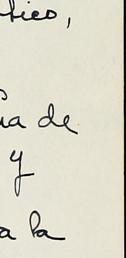 tico,
ia de
y
a la